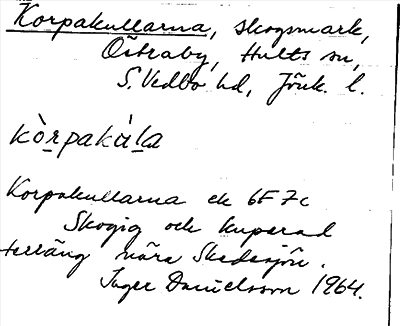 Korpakullarna, skogsmark,
Östraby, Hults sn,
S. Vedbo hd, Jönk. l.
kòr̲pakùl̲a
Korpakullarna ek 6F7c
Skogig och kuperad
terräng nära Skedesjön.
Inger Danielsson 1964.